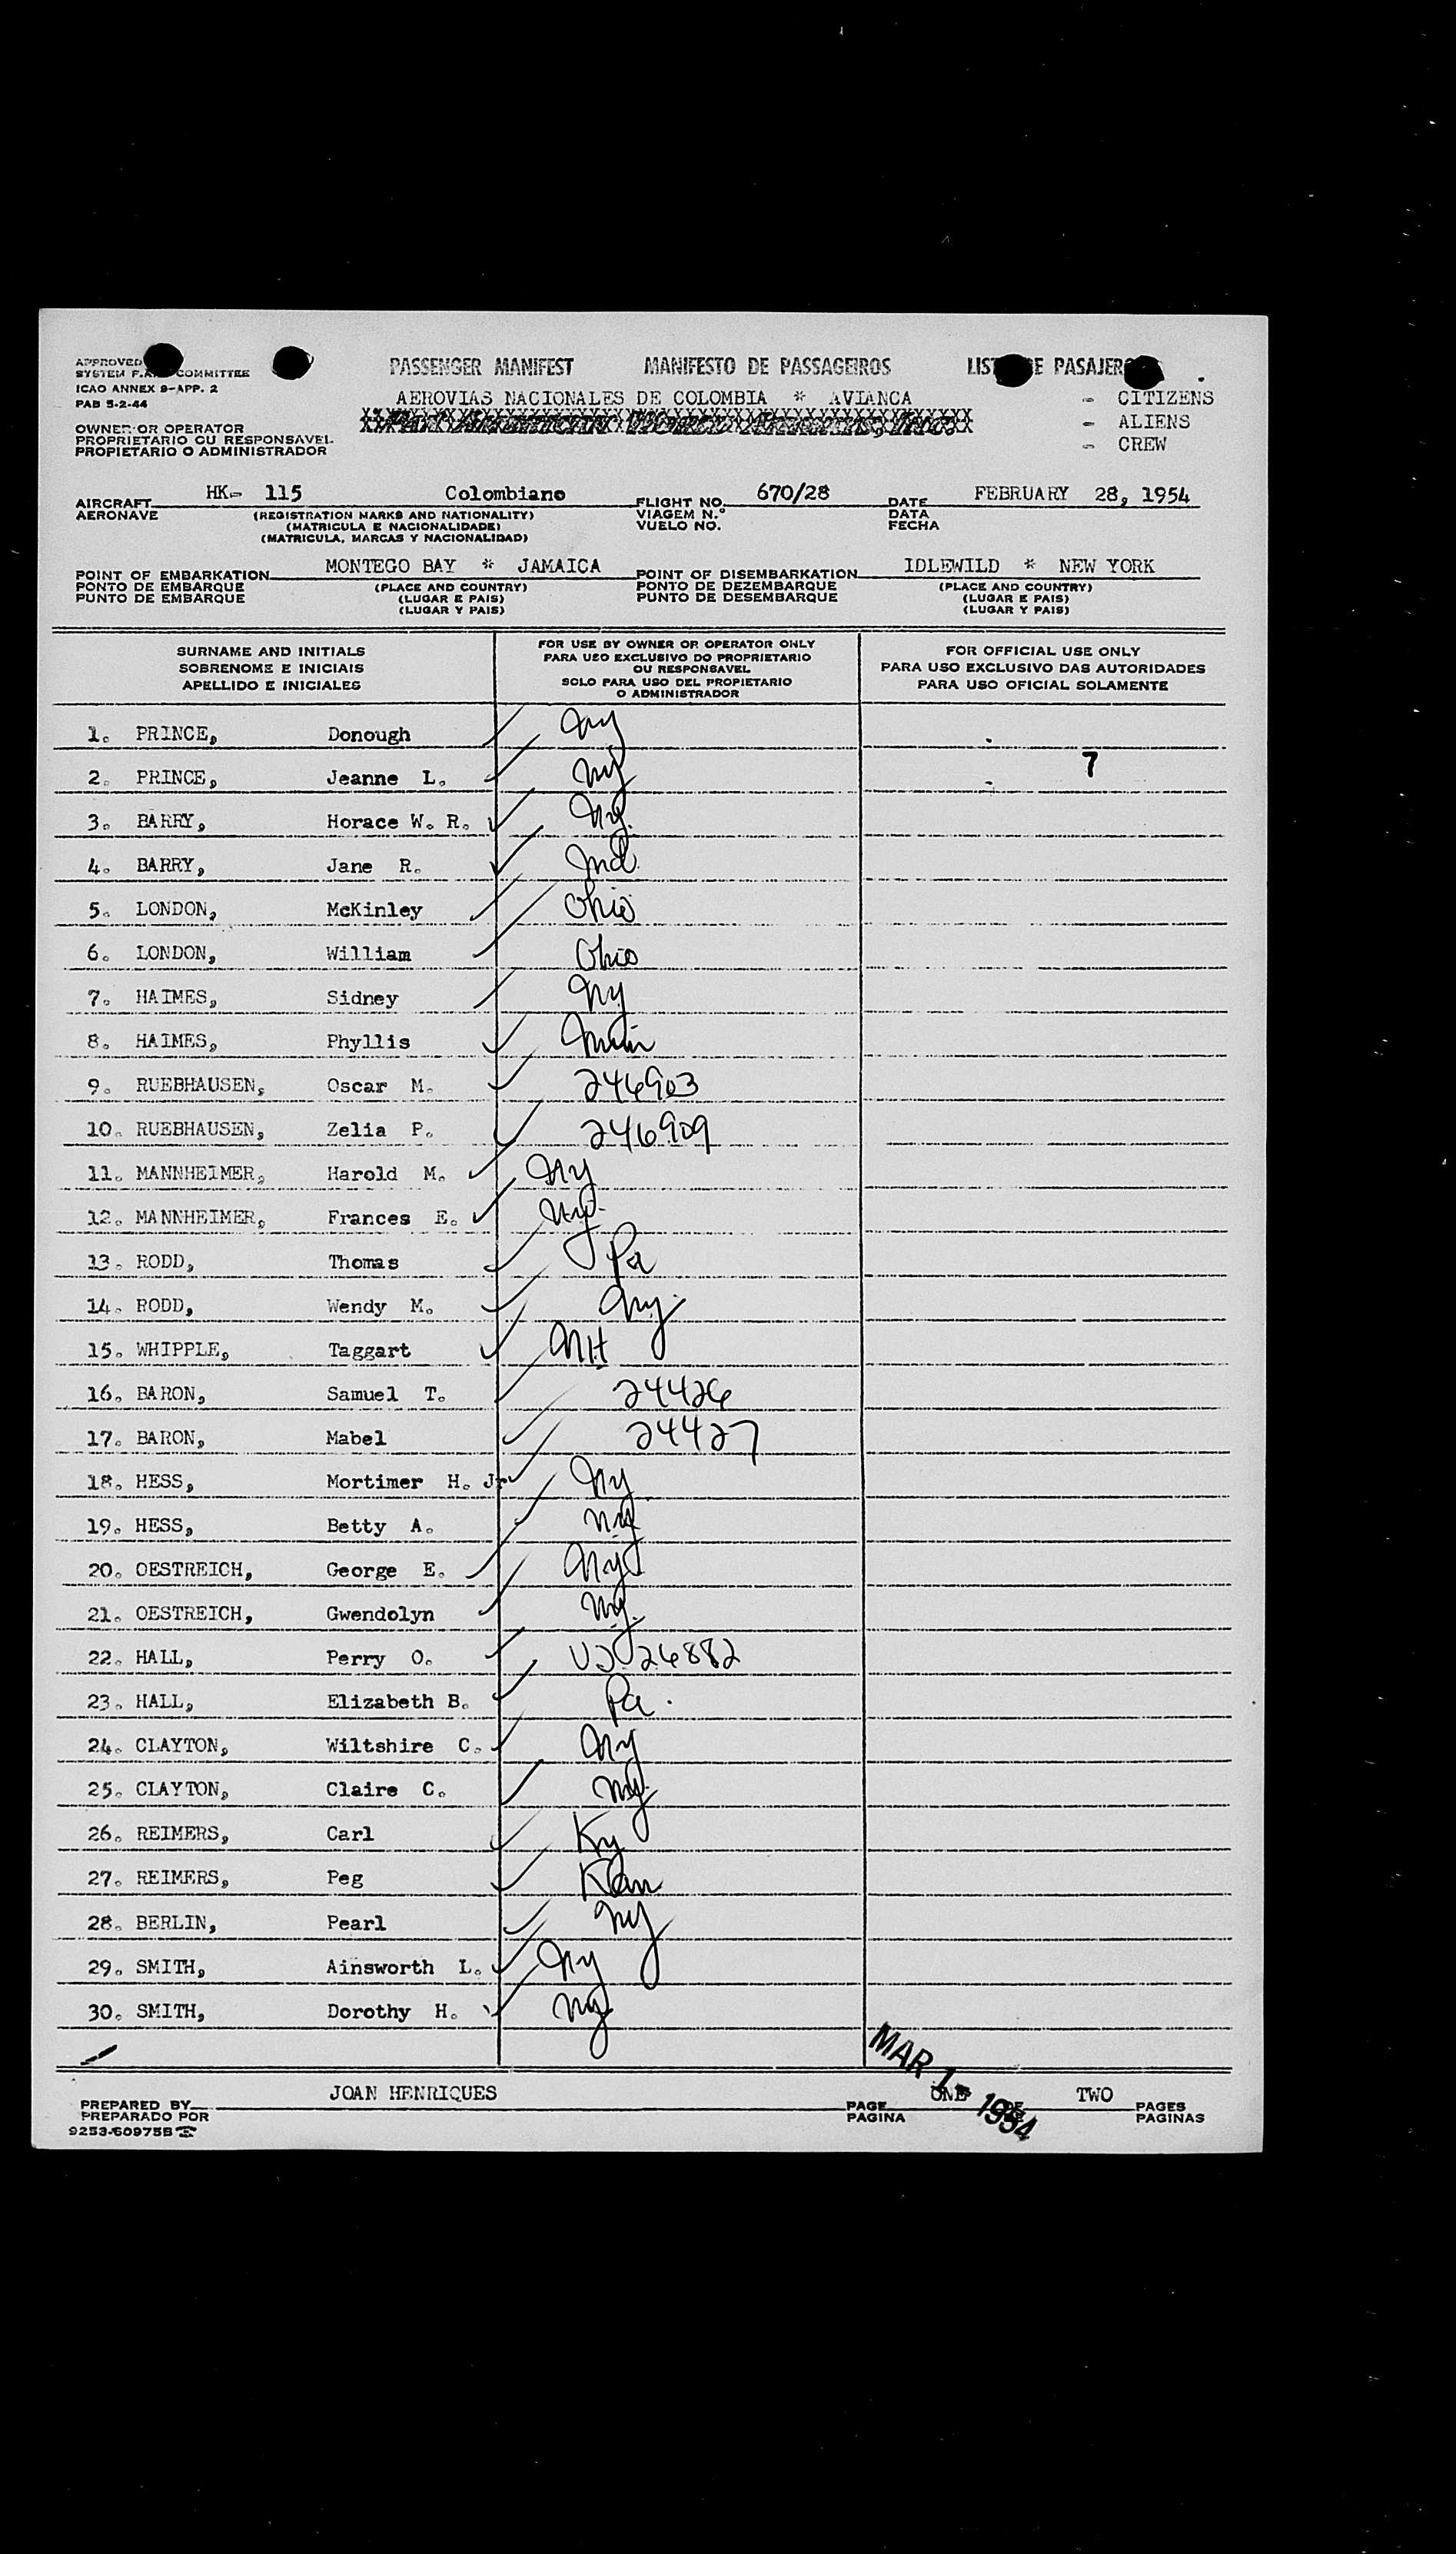 APPROVED
SYSTEM COMMITTEE
ICAO ANNEX 9-APP. 2
PAB 5-2-44
PASSENGER MANIFEST MANIFESTO DE PASSAGEIROS LIST E PASAJER
AEROVIAS NACIONALES DE COLOMBIA * AVIANCA
Pan American World Airways, Inc.
- CITIZENS
- ALIENS
- CREW
OWNER OR OPERATOR
PROPRIETARIO OU RESPONSAVEL
PROPIETARIO O ADMINISTRADOR
AIRCRAFT HK- 115 Colombiano FLIGHT NO. 670/28 DATE FEBRUARY 28, 1954
AERONAVE (REGISTRATION MARKS AND NATIONALITY) VIAGEM N.° DATA
(MATRICULA E NACIONALIDADE) VUELO NO. FECHA
(MATRICULA, MARCAS Y NACIONALIDAD)
POINT OF EMBARKATION MONTEGO BAY * JAMAICA POINT OF DISEMBARKATION IDLEWILD * NEW YORK
PONTO DE EMBARQUE (PLACE AND COUNTRY) PONTO DE DEZEMBARQUE (PLACE AND COUNTRY)
PUNTO DE EMBARQUE (LUGAR E PAIS) PUNTO DE DESEMBARQUE (LUGAR E PAIS)
(LUGAR Y PAIS) (LUGAR Y PAIS)
SURNAME AND INITIALS
SOBRENOME E INICIAIS
APELLIDO E INICIALES
FOR USE BY OWNER OR OPERATOR ONLY
PARA USO EXCLUSIVO DO PROPRIETARIO
OU RESPONSAVEL
SOLO PARA USO DEL PROPIETARIO
O ADMINISTRADOR
FOR OFFICIAL USE ONLY
PARA USO EXCLUSIVO DAS AUTORIDADES
PARA USO OFICIAL SOLAMENTE
1. PRINCE, Donough ny
2. PRINCE, Jeanne L. ny 7
3. BARRY, Horace W. R. ny.
4. BARRY, Jane R. Ind.
5. LONDON, McKinley Ohio
6. LONDON, William Ohio
7. HAIMES, Sidney ny
8. HAIMES, Phyllis
9. RUEBHAUSEN, Oscar M. 246903
10. RUEBHAUSEN, Zelia P. 246909
11. MANNHEIMER, Harold M. ny
12. MANNHEIMER, Frances E. ny.
13. RODD, Thomas Pa
14. RODD, Wendy M. ny.
15. WHIPPLE, Taggart NH
16. BARON, Samuel T. 24426
17. BARON, Mabel 24427
18. HESS, Mortimer H. Jr ny
19. HESS, Betty A. ny
20. OESTREICH, George E. ny
21. OESTREICH, Gwendolyn ny.
22. HALL, Perry O. 26882
23. HALL, Elizabeth B. Pa.
24. CLAYTON, Wiltshire C. ny
25. CLAYTON, Claire C. ny.
26. REIMERS, Carl Ky
27. REIMERS, Peg Kan
28. BERLIN, Pearl ny
29. SMITH, Ainsworth L. ny
30. SMITH, Dorothy H. ny
MAR 1- 1954
PREPARED BY JOAN HENRIQUES PAGE ONE TWO PAGES
PREPARADO POR PAGINA PAGINAS
9253-60975B